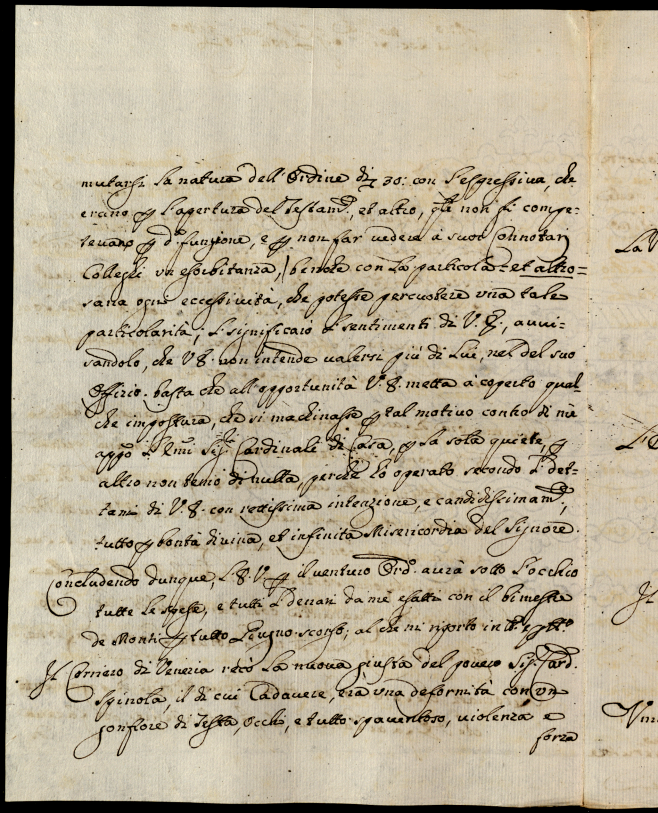 mutarsi la natura dell'Ordine di 30: con l'espressiva, che
erano p l'apertura del Testamto, et altro, qle non si compe-
tevano p da funzione, e p non far vedere à suoi Connotari
Collegli un esorbitanza, benche con la particola = et altro =
sana ogni eccessività, che potesse percuotere una tale
particolarità; significaio sentimenti di V.S., avvi-
sandolo, che V.S. non intende valersi più di Lui, nel del suo
Offizio. basta che all'opportunità V.S. metta à coperto qual-
che impostura, che si machinasse p tal motivo contro di mè
appo l'Emi Sigr Cardinale di Casa, p la sola quiete, p
altro non temo di nulla, perche hò operato secondo det-
tami di V.S. con rettissima intenzione, e candidissimamte,
tutto p bontà divina, et infinita Misericordia del Signore.
Concludendo dunque, V. p il venturo Ordo. avrà sotto l'occhio
tutte le spese, e tutti denari da mè esatti con il bimestre
de Monti p tutto Giugno scorso; al che mi riporto in
Il Corriero di Venezia recò la nuova giusta del povero Sigr Card.
Spinola, il di cui Cadavere, era una deformità con un
gonfiore di Testa, Occhi, e tutto spaventoso, violenza e
forza
La V

Il